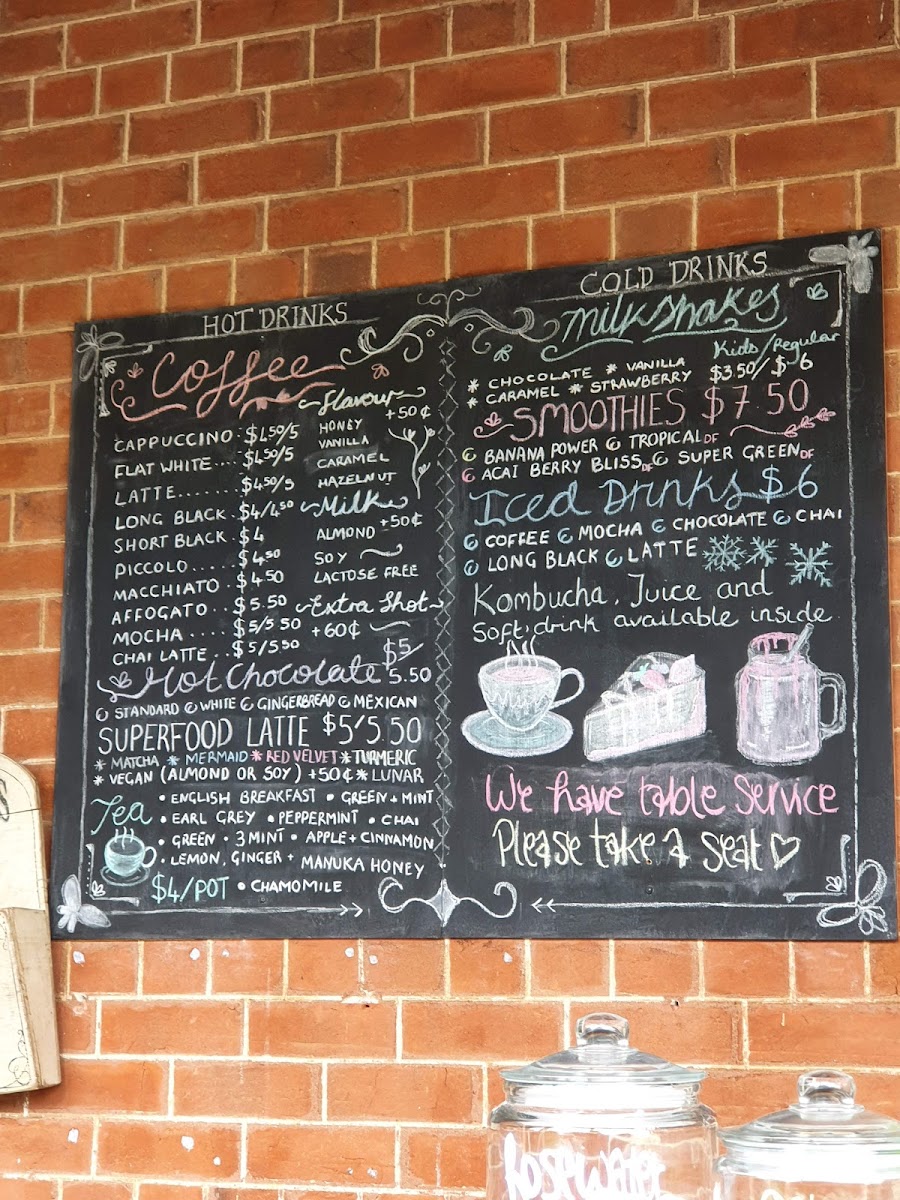 HOT DRINKS
Coffee
CAPPUCCINO. $4.50/5
FLAT WHITE.... $4.50/5
LATTE....... $4.50/5
LONG BLACK. $4/4.50
SHORT BLACK. $4
PICCOLO..... $4.50
MACCHIATO. $4.50
AFFOGATO.. $5.50
MOCHA.... $5/5.50
CHAI LATTE.. $5/5.50
Flavour
+50¢
HONEY
VANILLA
CARAMEL
HAZELNUT
Milk
+50¢
ALMOND
SOY
LACTOSE FREE
Extra Shot
+60¢
Hot Chocolate $5/5.50
STANDARD WHITE GINGERBREAD MEXICAN
SUPERFOOD LATTE $5/5.50
* MATCHA * MERMAID * RED VELVET * TURMERIC
* VEGAN (ALMOND OR SOY) +50¢ * LUNAR
Tea
• ENGLISH BREAKFAST • GREEN + MINT
• EARL GREY • PEPPERMINT • CHAI
• GREEN • 3 MINT • APPLE + CINNAMON
• LEMON, GINGER + MANUKA HONEY
$4/POT • CHAMOMILE
COLD DRINKS
Milkshakes
Kids/Regular
* CHOCOLATE * VANILLA
* CARAMEL * STRAWBERRY $3.50/$6
SMOOTHIES $7.50
BANANA POWER TROPICAL DF
ACAI BERRY BLISS DF SUPER GREEN DF
Iced Drinks $6
COFFEE MOCHA CHOCOLATE CHAI
LONG BLACK LATTE
Kombucha, Juice and
Soft drink available inside.
We have table Service
Please take a seat ♡
Rosewater